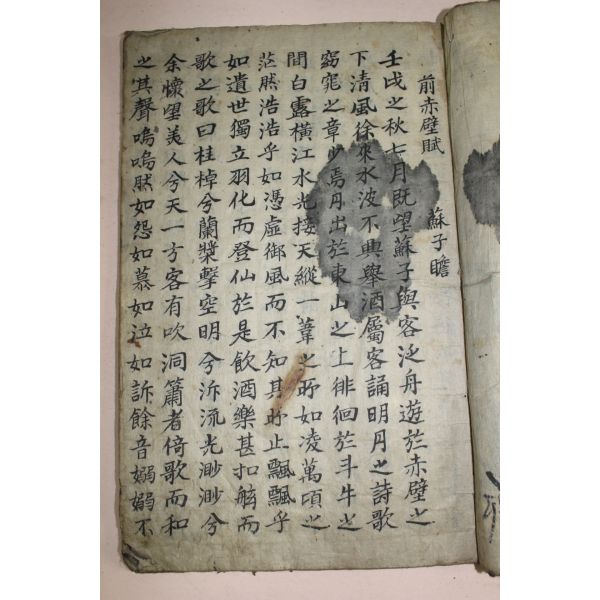 前赤壁賦 蘇子瞻
壬戌之秋七月既望蘇子與客泛舟遊於赤壁之
下清風徐來水波不興舉酒屬客誦明月之詩歌
窈窕之章少焉月出於東山之上徘徊於斗牛之
間白露橫江水光接天縱一葦之所如凌萬頃之
茫然浩浩乎如憑虛御風而不知其所止飄飄乎
如遺世獨立羽化而登仙於是飲酒樂甚扣舷而
歌之歌曰桂棹兮蘭槳擊空明兮泝流光渺渺兮
余懷望美人兮天一方客有吹洞簫者倚歌而和
之其聲嗚嗚然如怨如慕如泣如訴餘音嫋嫋不